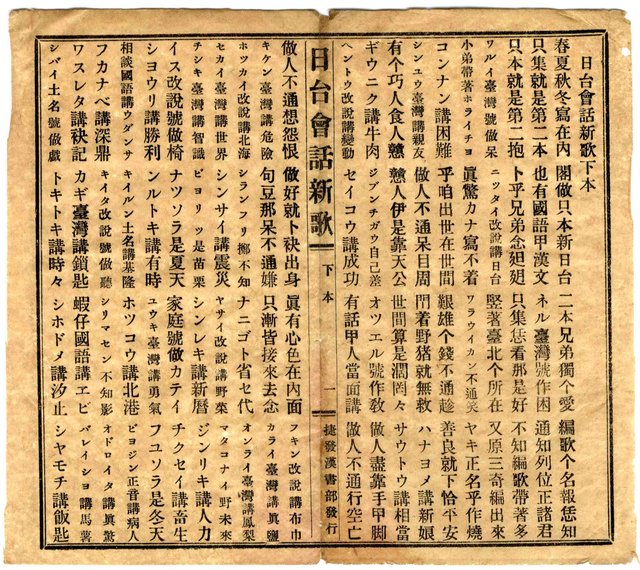 日台會話新歌下本
春夏秋冬寫在內 閣做只本新日台 二本兄弟獨个愛 編歌个名報恁知
只集就是第二本 也有國語甲漢文 ネル臺灣號作困 通知列位正諸君
只本就是第二抱 卜乎兄弟念廻廻 只集恁看那是好 不知編歌帶著多
ワルイ臺灣號做呆 ニツタイ改說講日台 竪著臺北个所在 又原三奇編出來
小弟帶著ホライチヨ 眞驚カナ寫不着 ワラウイカン不通笑 ヤキ正名乎作燒
コンナン講困難 乎咱出世在世間 艱雄个錢不通趁 善良就下恰平安
シンユウ臺灣講親友 做人不通呆目周 閂着野猪就無救 ハナヨメ講新娘
有个巧人食人戇 戇人伊是靠天公 世間算是濶罔々 サウトウ講相當
ギウニク講牛肉 ジブンチガウ自己差 オツエル號作敎 做人盡靠手甲脚
ヘントウ改說講變動 セイコウ講成功 有話甲人當面講 做人不通行空亡
日台會話新歌 下本 一 捷發漢書部發行
做人不通想怨恨 做好就卜袂出身 眞有心色在內面 フキン改說講布巾
キケン臺灣講危險 句豆那呆不通嫌 只漸皆接來去念 カライ臺灣講眞鹽
ホツカイ改說講北海 シランフリ擲不知 ナニゴト省セ代 オンライ臺灣講鳳梨
セカイ臺灣講世界 シンサイ講震災 ヤサイ改說講野菜 マタコナイ野未來
チシキ臺灣講智識 ビヨリツ是苗栗 シンレキ講新曆 ジンリキ講人力
イス改說號做椅 ナツソラ是夏天 家庭號做カテイ チクセイ講畜生
シヨウリ講勝利 ンルトキ講有時 ユウキ臺灣講勇氣 フユソラ是冬天
相談國語講ウダンサ キイルン土名講基隆 ホツコウ講北港 ビヨジン正音講病人
フカナベ講深鼎 キイタ改說號做聽 シリマセン不知影 オドロイタ講眞驚
ワスレタ講袂記 カギ臺灣講鎖匙 蝦仔國語講エビ バレイシヨ講馬薯
シバイ土名號做戲 トキトキ講時々 シホドメ講汐止 シヤモチ講飯匙